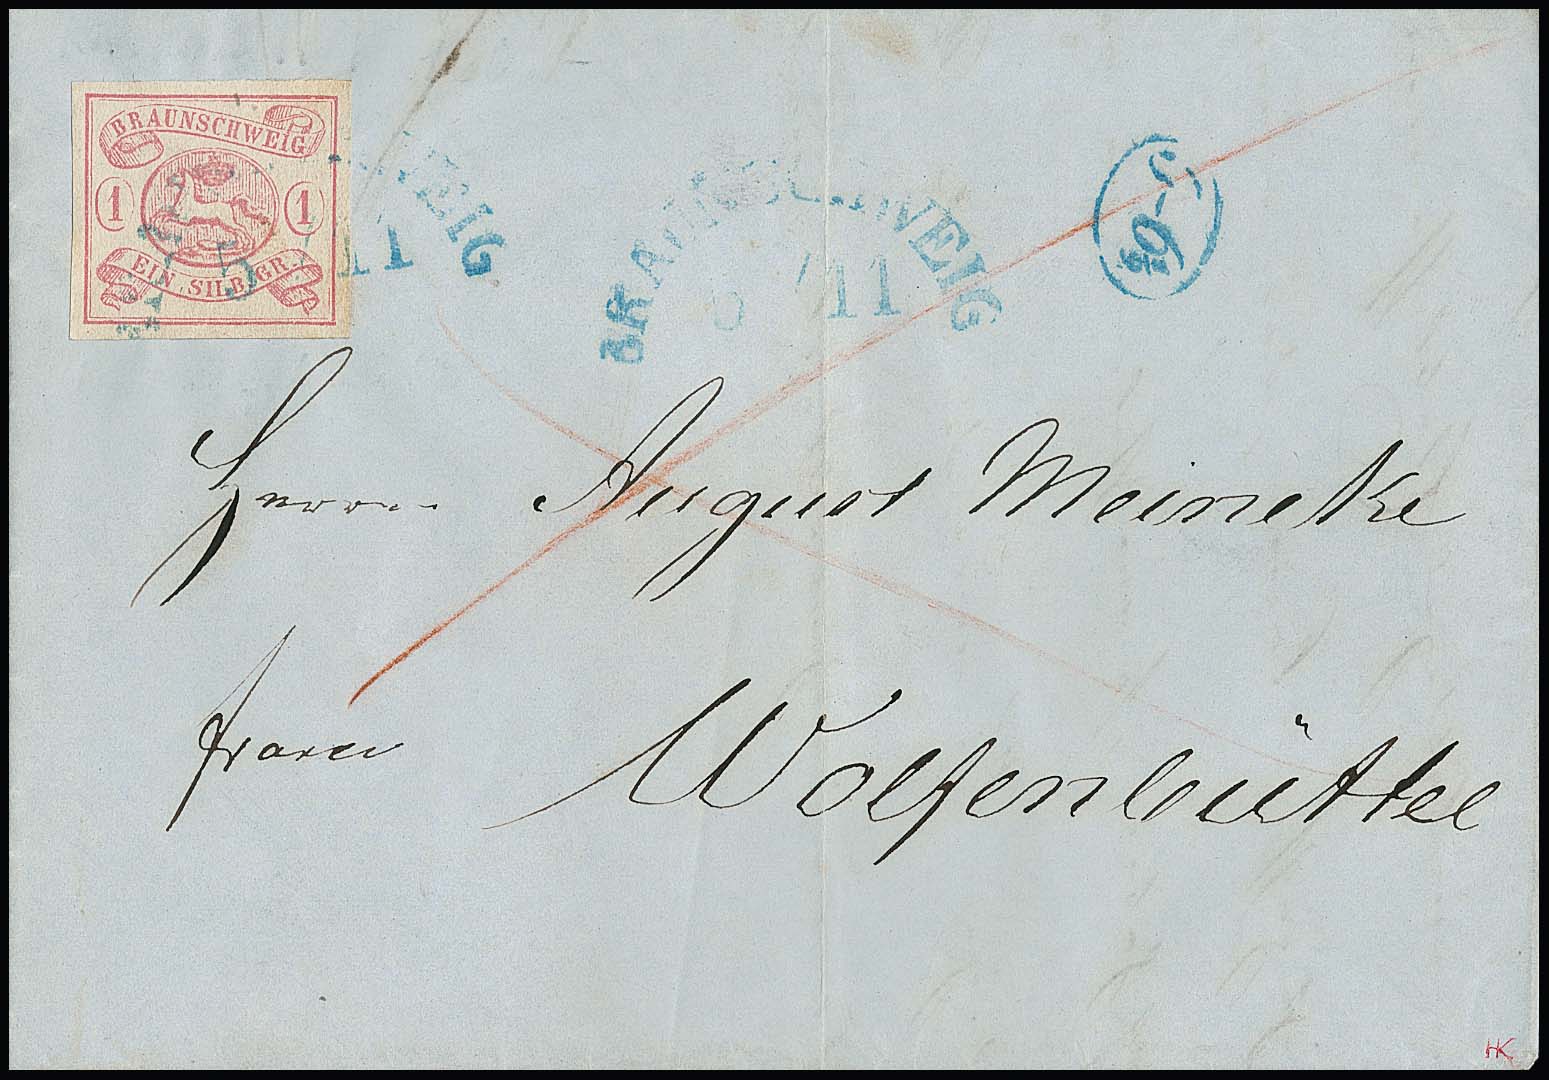 BRAUNSCHWEIG
1 1
EIN SILB. GR.
5 11
BRAUNSCHWEIG
11
Herrn August Meineke
franco Wolfenbüttel
HK